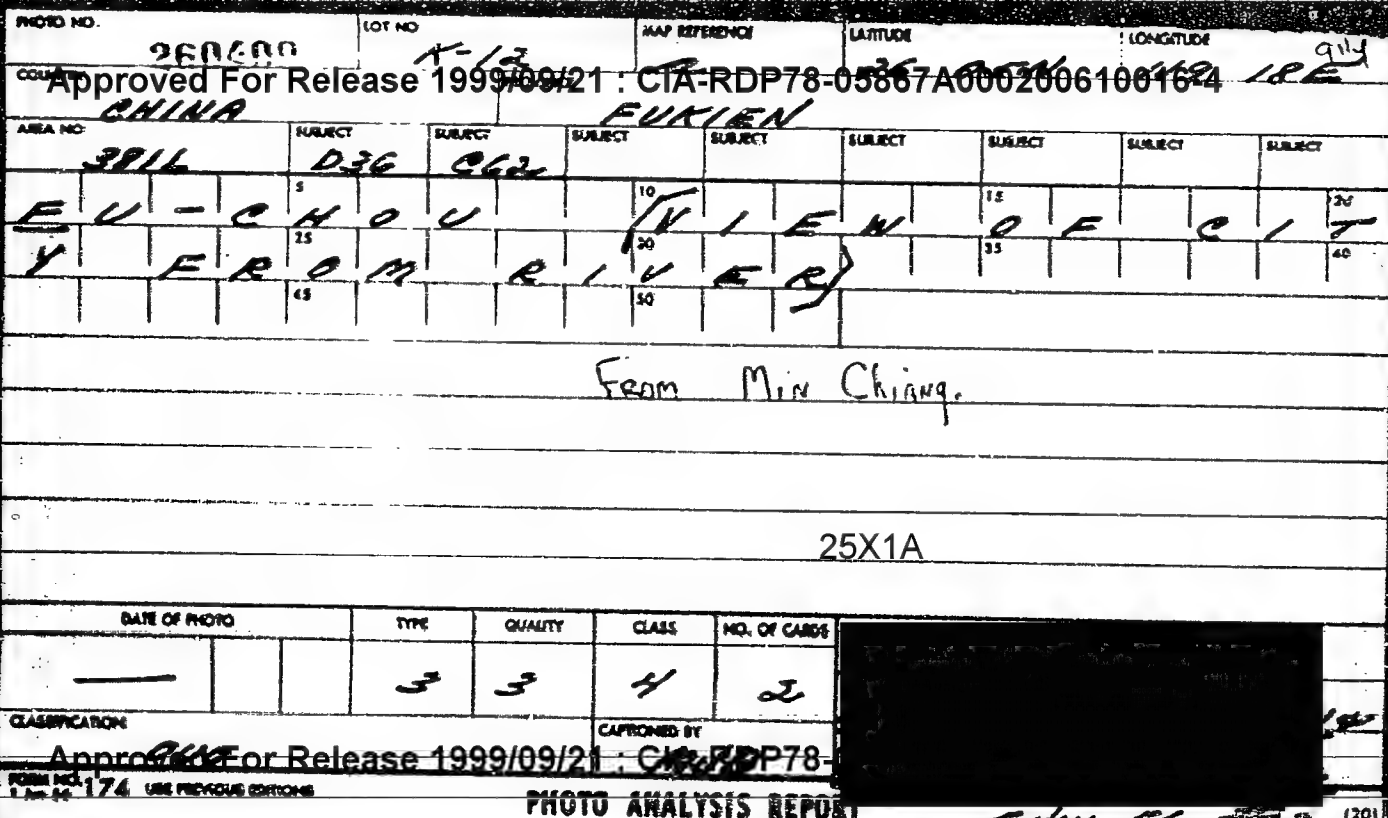 PHOTO NO. LOT NO MAP REFERENCE LATITUDE LONGITUDE
X-12 18E
Approved For Release 1999/09/21 : CIA-RDP78-05867A000200610016-4
CHINA FUKIEN
AREA NO. SUBJECT SUBJECT SUBJECT SUBJECT SUBJECT SUBJECT SUBJECT SUBJECT
381L D36 C62
5 10 15 20
FU-CHOU (VIEW OF CIT
25 30 35 40
Y FROM RIVER)
45 50
From Min Chiang.
25X1A
DATE OF PHOTO TYPE QUALITY CLASS NO. OF CARDS
— 3 3 4 2
CLASSIFICATION CAPTIONED BY
Approved For Release 1999/09/21 : CIA-RDP78-
FORM NO. 174 USE PREVIOUS EDITIONS
PHOTO ANALYSIS REPORT
(20)